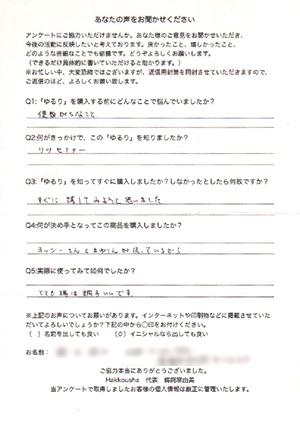 あなたの声をお聞かせください
アンケートにご協力いただけませんか。あなた様のご意見をお聞かせいただき、
今後の活動に反映したいと考えております。良かったこと、嬉しかったこと、
どのような些細なことでも結構です。どうぞよろしくお願いします。
(できるだけ具体的に書いていただけると助かります。)
※お忙しい中、大変恐縮ではございますが、返信用封筒を同封させていただきますので、
ご返信のほど、よろしくお願い致します。
Q1:「ゆるり」を購入する前にどんなことで悩んでいましたか?
便秘がちなこと
Q2:何がきっかけで、この「ゆるり」を知りましたか?
セミナー
Q3:「ゆるり」を知ってすぐに購入しましたか?しなかったとしたら何故ですか?
すぐに試してみようと思いました
Q4:何が決め手となってこの商品を購入しましたか?
ヨッシーさんと
Q5:実際に使ってみて如何でしたか?
とても腸は調子いいです。
※上記のお声についてお願いがあります。インターネットや印刷物などに掲載させていた
だいてよろしいでしょうか?下記の中から○印をお付けください。
( )名前を出しても良い (○)イニシャルなら出しても良い
お名前:
ご協力本当にありがとうございました。
Hakkousha 代表
当アンケートで取得しましたお客様の個人情報は厳正に管理いたします。